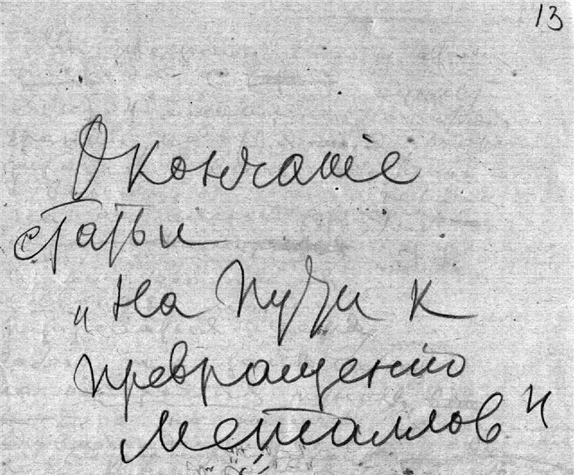 13
Окончание
статьи
„На пути к
превращению
металлов"